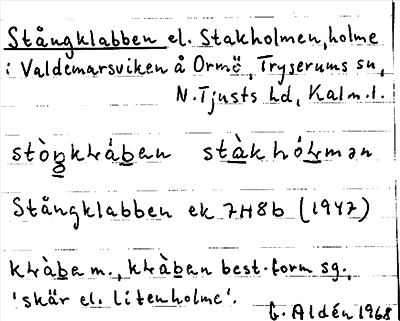 Stångklabben el. Stakholmen, holme
i Valdemarsviken å Ormö, Tryserums sn,
N. Tjusts hd, Kalm. l.
Stångklabben ek 7H8b (1947)
best. form sg.,
'skär el. liten holme'.
G. Aldén 1968